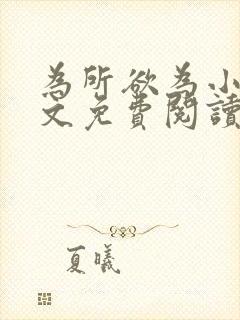 為所欲為小
文免費閱讀
夏曦